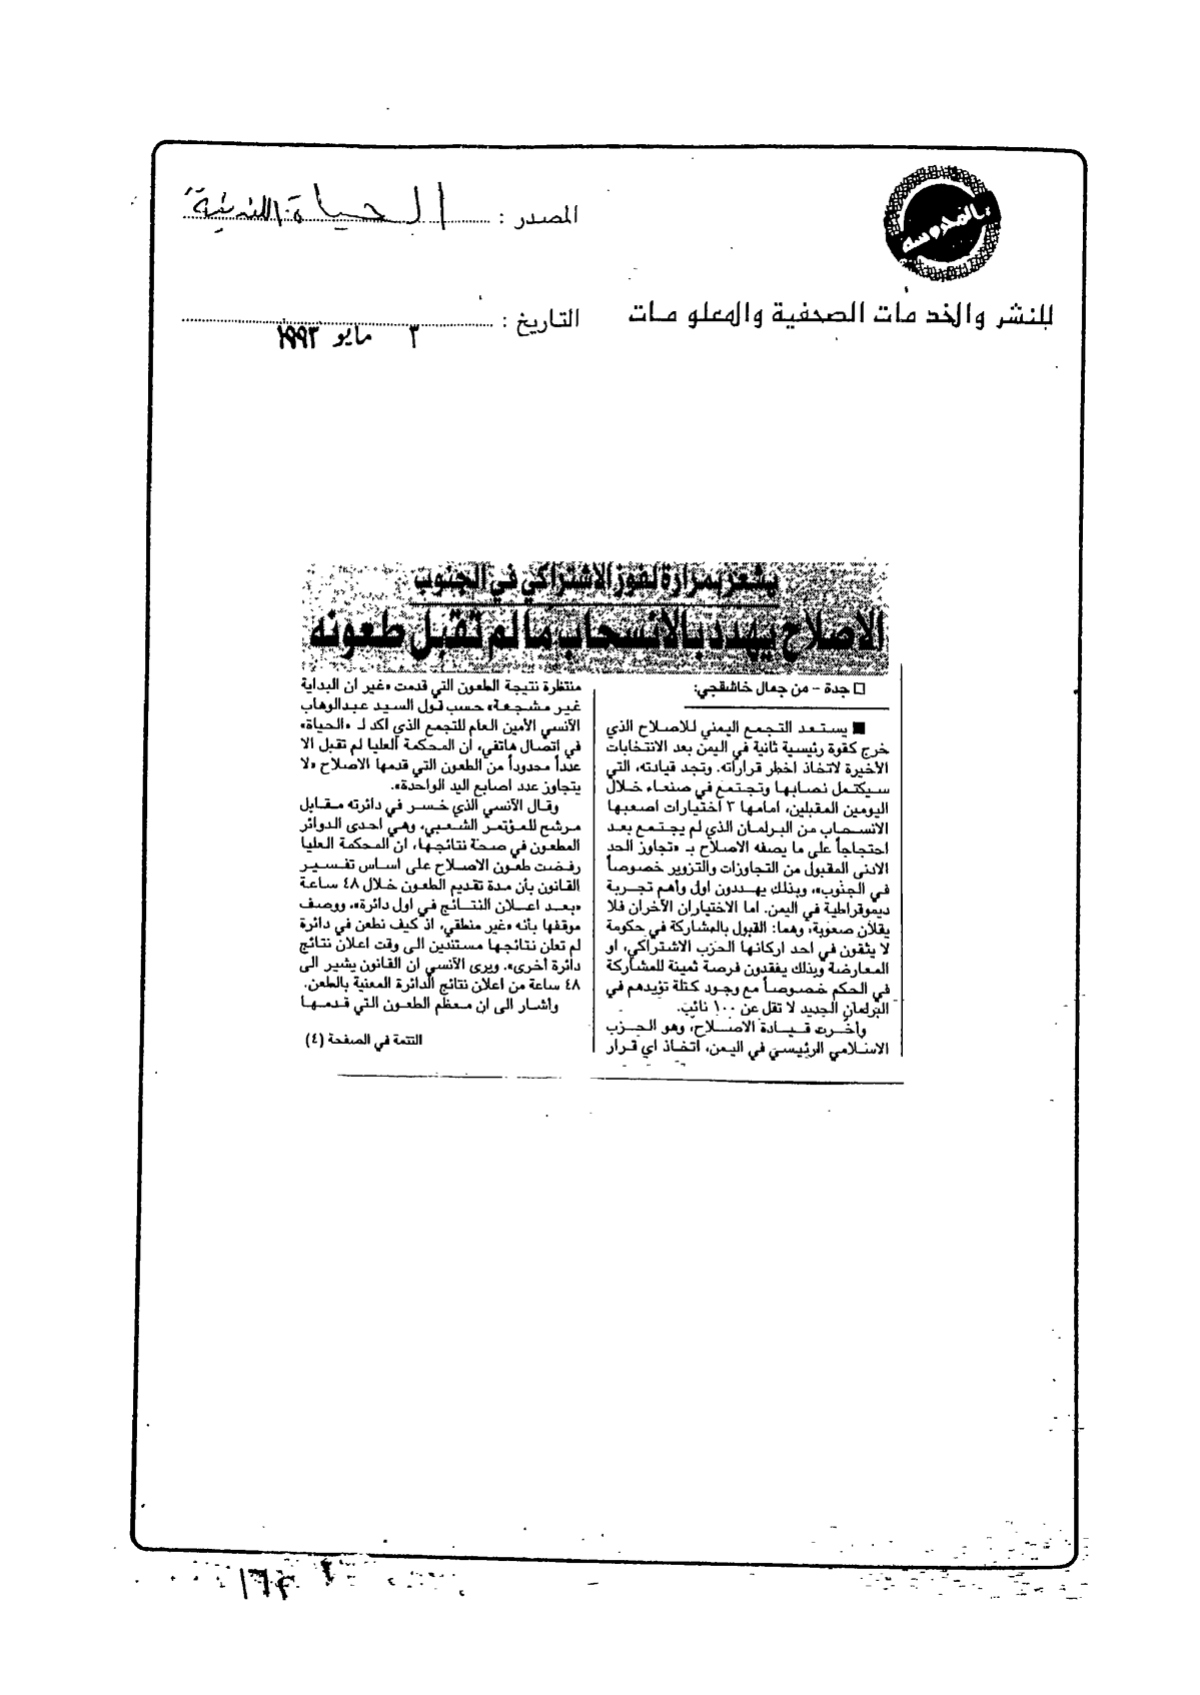 المصدر : الحياة اللندنية
للنشر والخدمات الصحفية والمعلومات
التاريخ : ٣ مايو ١٩٩٣
يشعر بمرارة لفوز الاشتراكي في الجنوب
الاصلاح يهدد بالانسحاب ما لم تقبل طعونه
□ جدة - من جمال خاشقجي:
■ يستعد التجمع اليمني للاصلاح الذي
خرج كقوة رئيسية ثانية في اليمن بعد الانتخابات
الأخيرة لاتخاذ اخطر قراراته. وتجد قيادته، التي
سيكتمل نصابها وتجتمع في صنعاء خلال
اليومين المقبلين، امامها ٣ اختيارات اصعبها
الانسحاب من البرلمان الذي لم يجتمع بعد
احتجاجاً على ما يصفه الاصلاح بـ «تجاوز الحد
الادنى المقبول من التجاوزات والتزوير خصوصاً
في الجنوب»، وبذلك يهددون اول وأهم تجربة
ديموقراطية في اليمن. اما الاختياران الآخران فلا
يقلان صعوبة، وهما: القبول بالمشاركة في حكومة
لا يثقون في احد اركانها الحزب الاشتراكي، او
المعارضة وبذلك يفقدون فرصة ثمينة للمشاركة
في الحكم خصوصاً مع وجود كتلة تؤيدهم في
البرلمان الجديد لا تقل عن ١٠٠ نائب.
وأخرت قيادة الاصلاح، وهو الحزب
الاسلامي الرئيسي في اليمن، اتخاذ اي قرار
منتظرة نتيجة الطعون التي قدمت «غير ان البداية
غير مشجعة» حسب قول السيد عبدالوهاب
الآنسي الأمين العام للتجمع الذي اكد لـ «الحياة»
في اتصال هاتفي، ان المحكمة العليا لم تقبل الا
عدداً محدوداً من الطعون التي قدمها الاصلاح «لا
يتجاوز عدد اصابع اليد الواحدة».
وقال الآنسي الذي خسر في دائرته مقابل
مرشح للمؤتمر الشعبي، وهي احدى الدوائر
المطعون في صحة نتائجها، ان المحكمة العليا
رفضت طعون الاصلاح على اساس تفسير
القانون بأن مدة تقديم الطعون خلال ٤٨ ساعة
«بعد اعلان النتائج في اول دائرة»، ووصف
موقفها بأنه «غير منطقي، اذ كيف نطعن في دائرة
لم تعلن نتائجها مستندين الى وقت اعلان نتائج
دائرة أخرى». ويرى الآنسي ان القانون يشير الى
٤٨ ساعة من اعلان نتائج الدائرة المعنية بالطعن.
وأشار الى ان معظم الطعون التي قدمها
التتمة في الصفحة (٤)